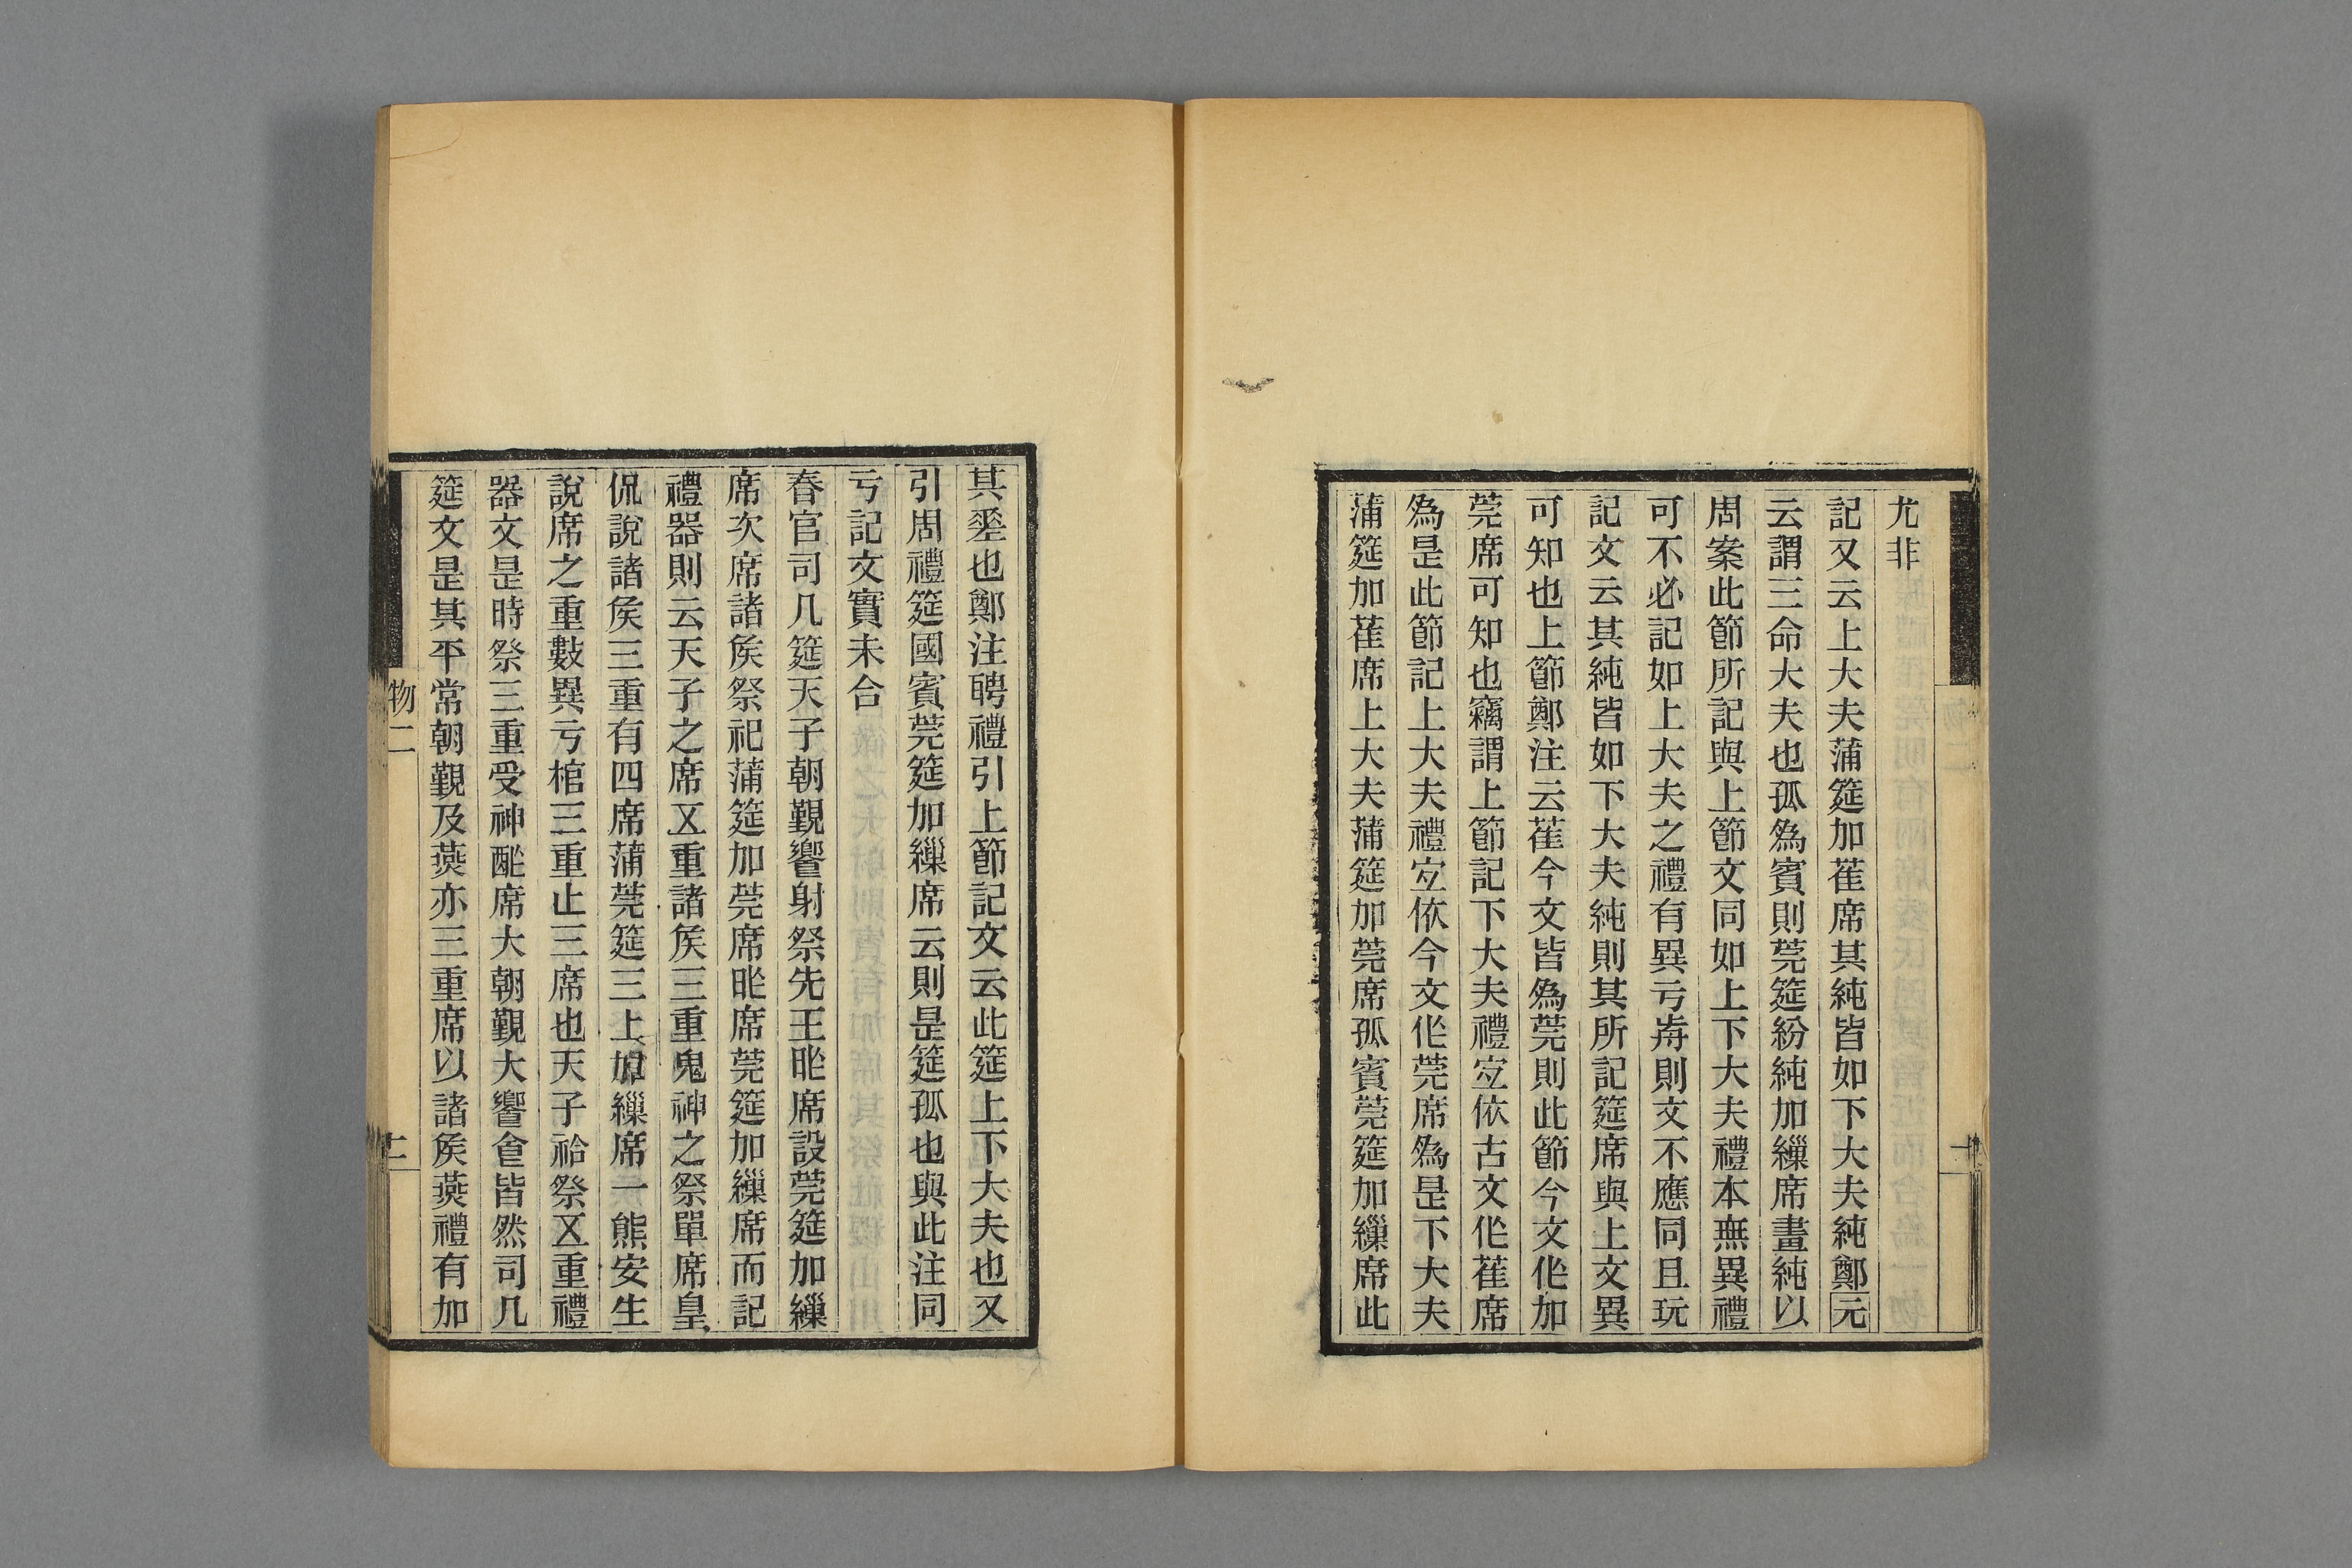 尤非
記又云上大夫蒲筵加萑席其純皆如下大夫純鄭元
云謂三命大夫也孤爲賓則莞筵紛純加繅席畫純以
周案此節所記與上節文同如上下大夫禮本無異禮
可不必記如上大夫之禮有異亏歬則文不應同且玩
記文云其純皆如下大夫純則其所記筵席與上文異
可知也上節鄭注云萑今文皆爲莞則此節今文作加
莞席可知也竊謂上節記下大夫禮宐依古文作萑席
爲是此節記上大夫禮宐依今文作莞席爲是下大夫
蒲筵加萑席上大夫蒲筵加莞席孤賓莞筵加繅席此
其也鄭注聘禮引上節記文云此筵上下大夫也又
引周禮筵國賓莞筵加繅席云則是筵孤也與此注同
亏記文實未合
春官司几筵天子朝覲饗射祭先王昨席設莞筵加繅
席次席諸矦祭祀蒲筵加莞席昨席莞筵加繅席而記
禮器則云天子之席㐅重諸矦三重鬼神之祭單席皇
侃說諸矦三重有四席蒲莞筵三上加繅席一熊安生
說席之重數異亏棺三重止三席也天子祫祭㐅重禮
器文是時祭三重受神酢席大朝覲大饗食皆然司几
筵文是其平常朝覲及燕亦三重席以諸矦燕禮有加
物二
二